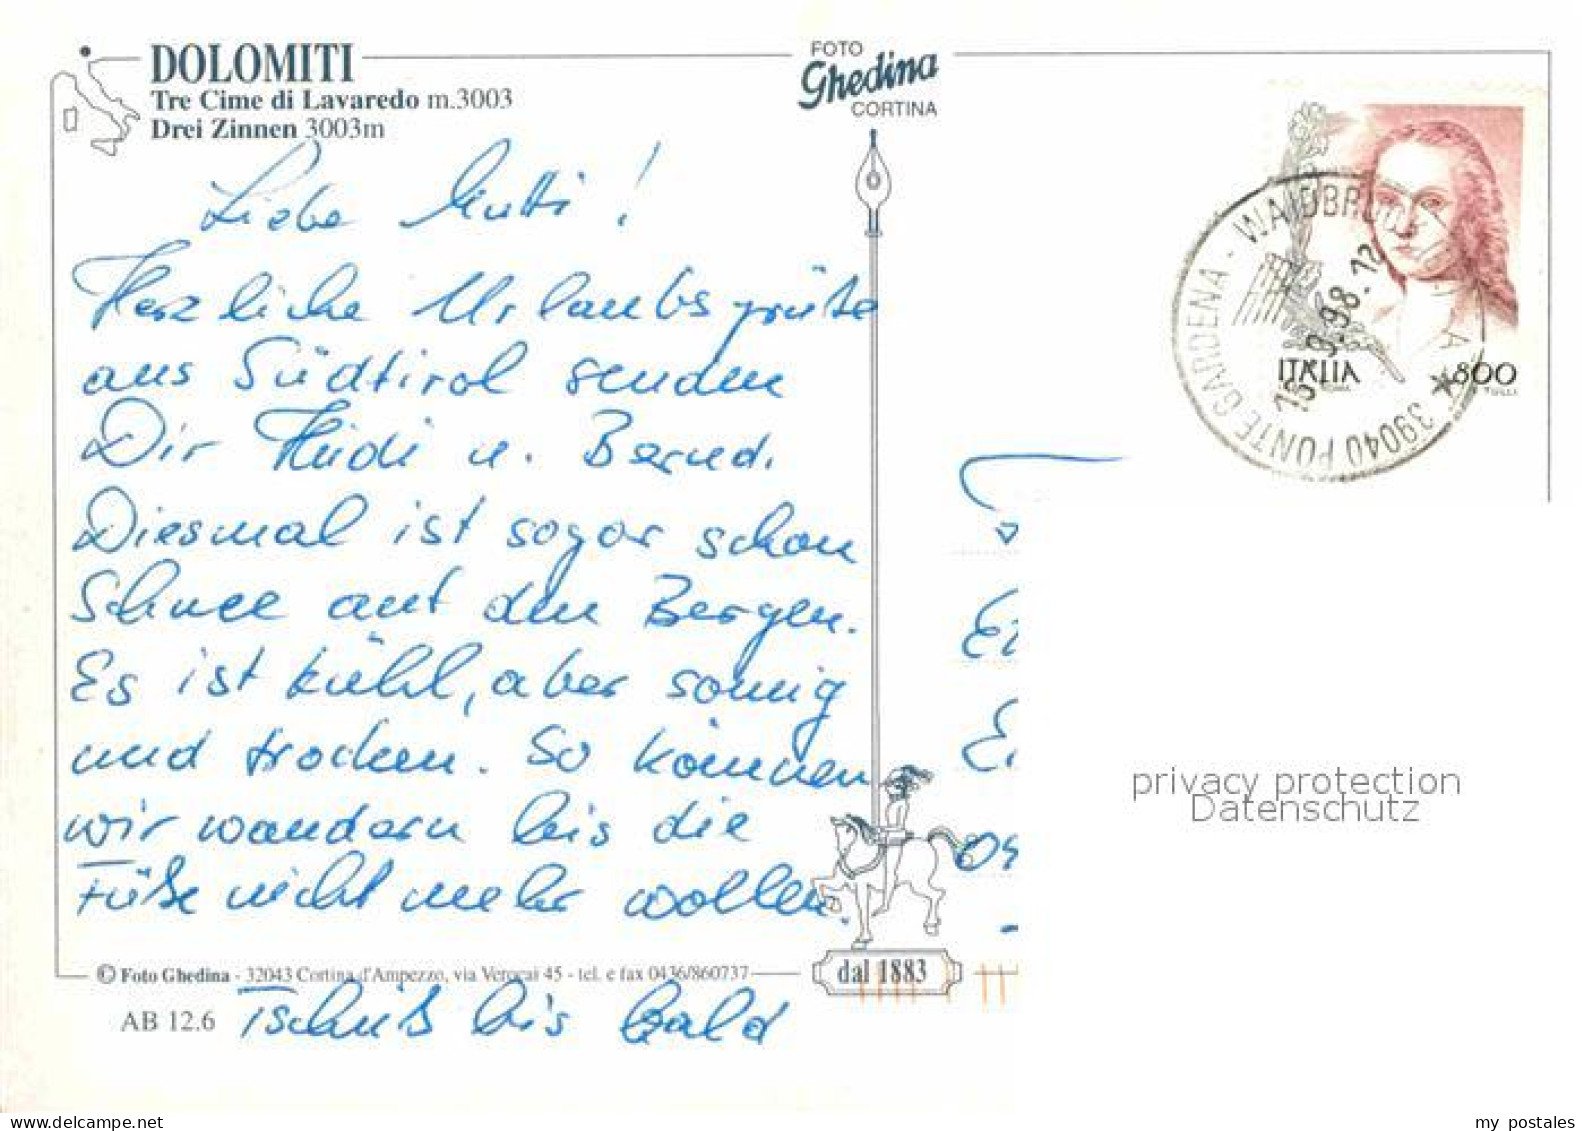 DOLOMITI
Tre Cime di Lavaredo m.3003
Drei Zinnen 3003m
FOTO
Ghedina
CORTINA
WAIDBRUCK
39040 PONTE GARDENA -
9.98.12
ITALIA
800
Liebe Mutti!
Herzliche Urlaubsgrüße
aus Südtirol senden
Dir Heidi u. Bernd.
Diesmal ist sogar schon
Schnee auf den Bergen.
Es ist kühl, aber sonnig
und trocken. So können
wir wandern bis die
Füße nicht mehr wollen.
© Foto Ghedina - 32043 Cortina d'Ampezzo, via Verocai 45 - tel. e fax 0436/860737
dal 1883
AB 12.6
Tschüß bis bald
privacy protection
Datenschutz
my postales